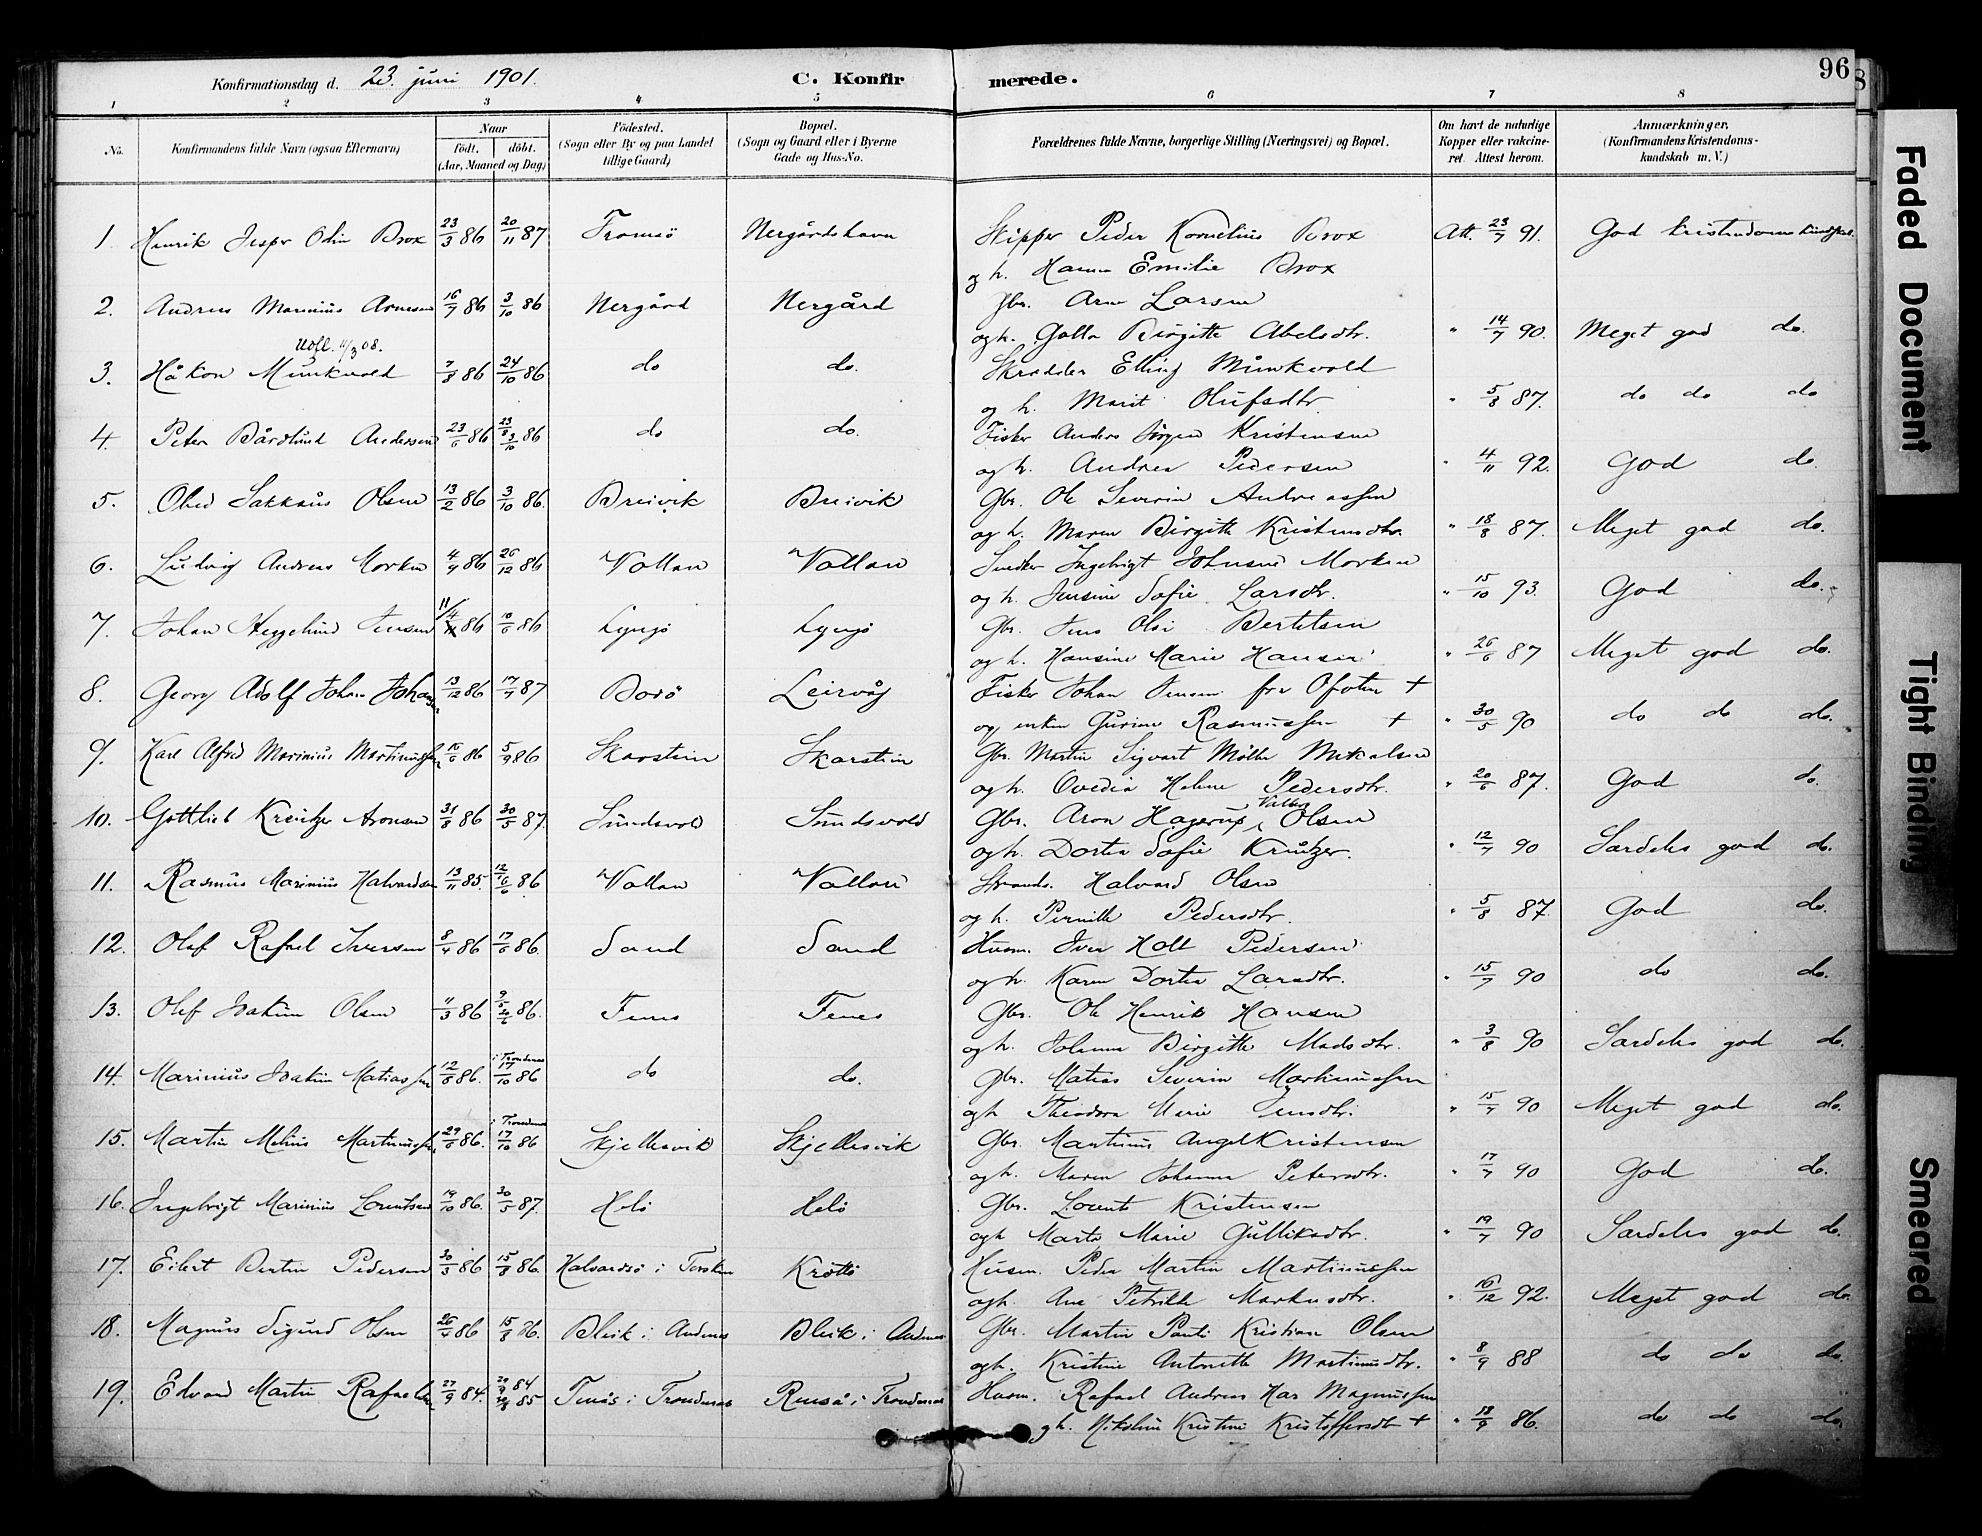 Konfirmationsdag d. 23. juni 1901. C. Konfirmerede. 96
1 2 3 4 5 6 7 8
No. Konfirmandens fulde Navn (ogsaa Efternavn) Naar født. døbt. (Aar, Maaned og Dag) Fødested. (Sogn eller By og paa Landet tillige Gaard) Bopæl. (Sogn og Gaard eller i Byerne Gade og Hus-No. Forældrenes fulde Navne, borgerlige Stilling (Næringsvei) og Bopæl. Om havt de naturlige Kopper eller vakcineret. Attest herom. Anmærkninger. (Konfirmandens Kristendomskundskab m. V.)
1 Henrik Jesper Odin Brox 23/3 86 20/11 87 Tromsö Nergårdshavn Skipper Peder Kornelius Brox Att. 23/7 91. God kristendomskundskab.
og h. Hanna Emilie Brox
2. Andreas Marinius Arnesen 16/7 86 3/10 86 Nergård Nergård Gbr. Arne Larsen
og h. Golla Birgitte Abelsdtr. " 14/7 90. Meget god do.
Udfl. 11/3 08.
3. Håkon Munkvold 7/8 86 24/10 86 do do. Skrædder Elling Munkvold
og h. Marit Olufsdtr. " 5/8 87. do do do
4. Peter Bårdlund Andersen 23/6 86 23/8 3/10 86 do do. Fisker Anders Jörgen Kristensen
og h. Andrea Pedersen " 4/11 92. God do.
5. Obed Sakkæus Olsen 13/2 86 3/10 86. Breivik Breivik Gbr. Ole Severin Andreassen
og h. Maren Birgitte Kristensdtr. " 18/8 87. Meget god do.
6. Ludvig Andreas Morken 4/9 86 26/12 86 Vollan Vollan Snedker Ingebrigt Johnsen Morken
og h. Jensine Sofie Larsdtr. " 15/10 93. God do.
7. Johan Heggelund Jensen 11/4 86 10/6 86 Lyngö Lyngö Gbr. Jens Olai Bertelsen
og h. Hansine Marie Hansen " 26/6 87 Meget god do.
8. Georg Adolf Johan Johansen 13/12 86 17/7 87 Bodö Leirvåg Fisker Johan Jensen fra Ofoten +
og enken Gurine Rasmussen + " 30/5 90 do do do.
9. Karl Alfred Marinius Martinussen 16/6 86 5/9 86 Skarstein Skarstein Gbr. Martin Sigvart Mölbe Mikalsen
og h. Ovedia Helene Pedersdtr. " 20/6 87. God do.
10. Gottlieb Kreutzer Aronsen 31/8 86 30/5 87. Sundsvold Sundsvold Gbr. Aron Hagerup Olsen
og h. Dortea Sofie Krutzer. " 12/7 90 Særdeles god do.
11. Rasmus Marinius Halvardsen 13/11 85. 86 Vollan Vollan Strands. Halvard Olsen
og h. Pernille Pedersdtr. " 5/8 87. God do.
12. Olaf Rafael Iversen 8/4 86 17/6 86. Sand Sand Husm. Iver Holt Pedersen
og h. Karen Dortea Larsdtr. " 15/7 90 do do.
13. Olef Joakim Olsen 11/3 86 86. Fenes Fenes Gbr. Ole Henrik Hansen
og h. Johanna Birgitte Madsdtr. " 3/8 90 Særdeles god do.
14. Marinius Joakim Matiassen 12/8 86. i Trondenes 17/10 86 do do. Gbr. Matias Severin Martinussen
og h. Theodora Marie Jensdtr. " 15/7 90 Meget god do.
15. Martin Melius Martinussen 29/6 86. i Trondenes 17/10 86 Skjellesvik Skjellesvik Gbr. Martinus Angel Kristensen
og h. Maren Johanna Petersdtr. " 17/7 90 God do.
16. Ingebrigt Marinius Lorentsen 19/10 86. 30/5 87. Helö Helö Gbr. Lorents Kristensen
og h. Marta Marie Gulliksdtr. " 19/7 90 Særdeles god do.
17. Eilert Bertin Pedersen 30/3 86 15/8 86. Halvardsö i Torsken Kröttö Husm. Peder Martin Martinussen
og h. Ane Petrikke Markusdtr. " 16/12 92. Meget god do.
18. Magnus Sigurd Olsen 26/4 86 15/8 86. Bleik i Andenes Bleik i Andenes Gbr. Martin Pauli Kristian Olsen
og h. Kristine Antonette Martinusdtr. " 8/9 88 do do do.
19. Edvard Martin Rafaelsen 27/9 84. 84 85 i Trondenes i Trondenes Husm. Rafael Andreas Magnussen
og h. Nikoline Kristine Kristoffersdtr + " 18/9 86. do do do.
Faded Document
Tight Binding
Smeared